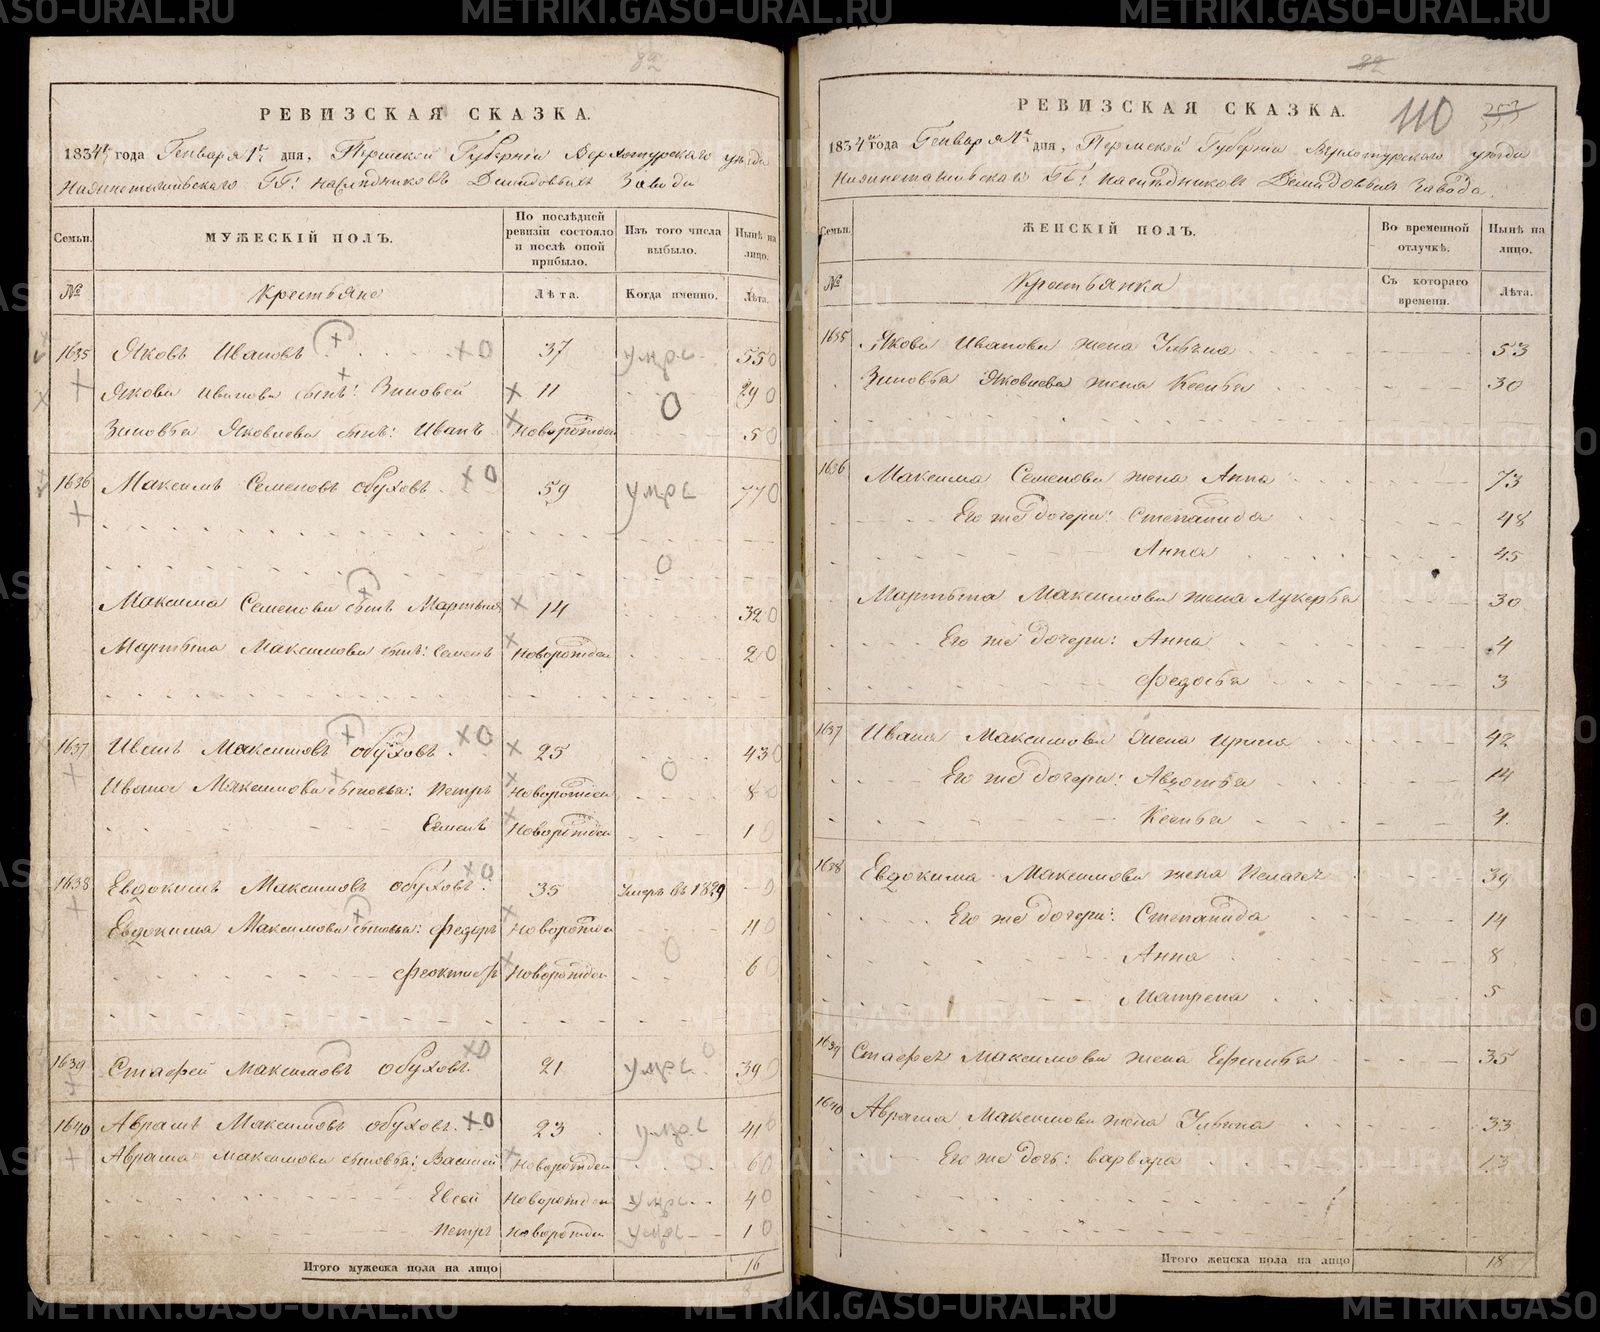 82
РЕВИЗСКАЯ СКАЗКА.
1834го года Генваря 1го дня, Пермской Губернiи Верхотурскаго уѣзда
Нижнетагильскаго ГГ: наслѣдниковъ Демидовыхъ Завода
Семьи.
МУЖЕСКІЙ ПОЛЪ.
По послѣдней ревизіи состояло и послѣ оной прибыло.
Изъ того числа выбыло.
Нынѣ на лицо.
№
Крестьяне
Лѣта.
Когда именно.
Лѣта.
1635 Яковъ Ивановъ 37 умре 55
Якова Иванова сынъ: Зиновей 11 29
Зиновья Яковлева сынъ: Иванъ Новорожден 5
1636 Максимъ Семеновъ обуховъ 59 умре 77
Максима Семенова сынъ Мартынъ 14 32
Мартына Максимова сынъ: Семенъ Новорожден 2
1637 Иванъ Максимовъ обуховъ. 25 43
Ивана Максимова сыновья: Петръ Новорожден 8
Семенъ Новорожден 1
1638 Евдокимъ Максимовъ обуховъ. 35 Умеръ въ 1829
Евдокима Максимова сыновья: Федоръ Новорожден 11
Новорожден 6
1639 Стафей Максимовъ обуховъ. 21 умре 39
1640 Аврамъ Максимовъ обуховъ. 23 умре 41
Аврама Максимова сыновья: Василий Новорожден 6
Евсей Новорожден умре 4
Петръ Новорожден умре 1
Итого мужеска пола на лицо 16
82
110
РЕВИЗСКАЯ СКАЗКА.
1834го года Генваря 1го дня, Пермской Губернiи Верхотурскаго уѣзда
Нижнетагильскаго ГГ: наслѣдниковъ Демидовыхъ Завода.
Семьи.
ЖЕНСКІЙ ПОЛЪ.
Во временной отлучкѣ.
Нынѣ на лицо.
№
Крестьянка
Съ котораго времени.
Лѣта.
1635 Якова Иванова жена Ульяна 53
Зиновья Яковлева жена Ксенья 30
1636 Максима Семенова жена Анна 73
Его же дочери: Степанида 48
Анна 45
Мартына Максимова жена Лукерья 30
Его же дочери: Анна 4
Федосья 3
1637 Ивана Максимова жена Ирина 42
Его же дочери: Авдотья 14
Ксенья 4
1638 Евдокима Максимова жена Пелагея 39
Его же дочери: Степанида 14
Анна 8
Матрена 5
1639 Стафея Максимова жена Ефимья 35
1640 Аврама Максимова жена Ульяна 33
Его же дочь: варвара 13
Итого женска пола на лицо 18
METRIKI.GASO-URAL.RU